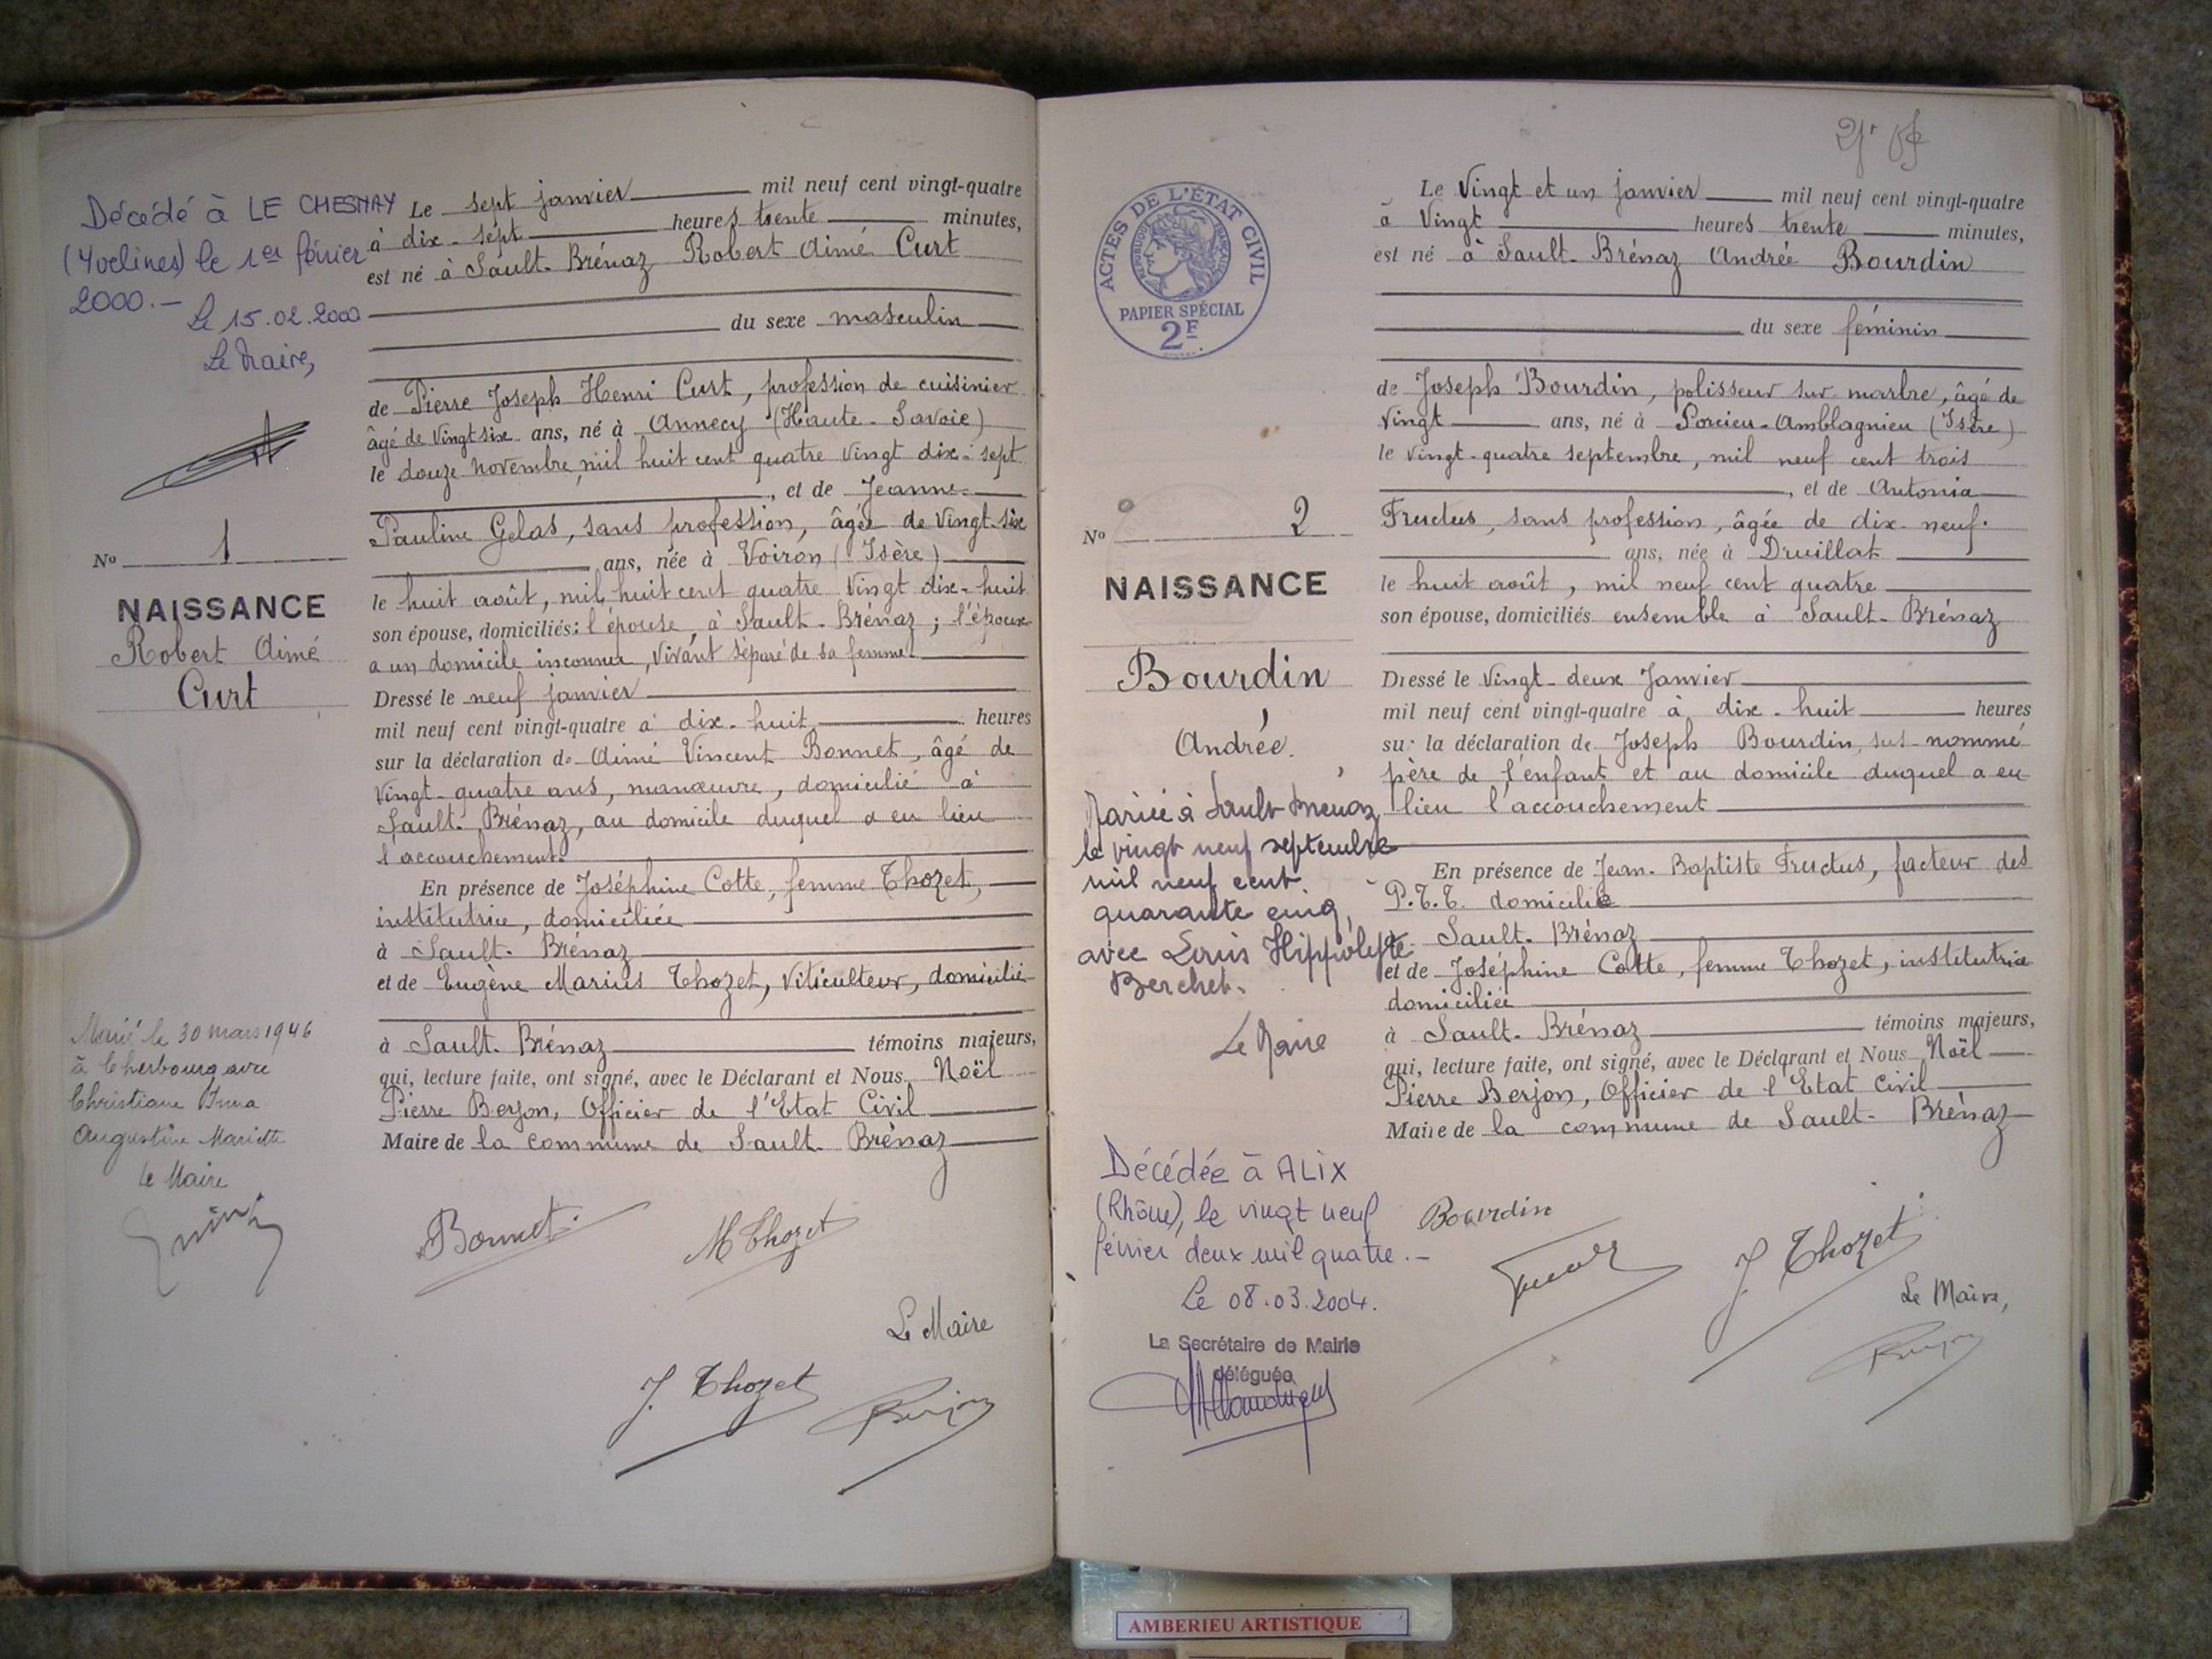 Décédé à LE CHESNAY
(Yvelines) le 1er février
2000.—
Le 15.02.2000
Le Maire,
No 1
NAISSANCE
Robert Aimé
Curt
Marié le 30 mars 1946
à Cherbourg avec
Christiane Irma
Augustine Mariette
Le Maire
Le sept janvier mil neuf cent vingt-quatre
à dix-sept heures trente minutes,
est né à Sault-Brénaz Robert Aimé Curt
du sexe masculin
de Pierre Joseph Henri Curt, profession de cuisinier
âgé de Vingt six ans, né à Annecy (Haute-Savoie)
le douze novembre, mil huit cent quatre Vingt dix-sept
, et de Jeanne
Pauline Gelas, sans profession, âgée de Vingt-six
ans, née à Voiron (Isère)
le huit août, mil huit cent quatre Vingt dix-huit
son épouse, domiciliés: l'épouse, à Sault-Brénaz; l'époux
a un domicile inconnu, Vivant séparé de sa femme.
Dressé le neuf janvier
mil neuf cent vingt-quatre à dix-huit heures
sur la déclaration de Aimé Vincent Bonnet, âgé de
Vingt-quatre ans, manœuvre, domicilié à
Sault-Brénaz, au domicile duquel a eu lieu
l'accouchement
En présence de Joséphine Cotte, femme Thozet,
institutrice, domiciliée
à Sault-Brénaz
et de Eugène Marius Thozet, Viticulteur, domicilié
à Sault-Brénaz témoins majeurs,
qui, lecture faite, ont signé, avec le Déclarant et Nous Noël
Pierre Berjon, Officier de l'Etat Civil
Maire de la commune de Sault-Brénaz
Bonnet
M Thozet
Le Maire
J. Thozet
Berjon
ACTES DE L'ÉTAT CIVIL
RÉPUBLIQUE FRANÇAISE
PAPIER SPÉCIAL
2F
No 2
NAISSANCE
Bourdin
Andrée.
Mariée à Sault Brenaz
le vingt neuf septembre
mil neuf cent
quarante cinq,
avec Louis Hippolyte
Berchet.
Le Maire
Décédée à ALIX
(Rhône), le vingt neuf
février deux mil quatre.—
Le 08.03.2004.
La Secrétaire de Mairie
déléguée
Le Vingt et un janvier mil neuf cent vingt-quatre
à Vingt heures trente minutes,
est né à Sault-Brénaz Andrée Bourdin
du sexe féminin
de Joseph Bourdin, polisseur sur marbre, âgé de
Vingt ans, né à Porcieu-Amblagnieu (Isère)
le Vingt-quatre septembre, mil neuf cent trois
, et de Antonia
Fructus, sans profession, âgée de dix-neuf
ans, née à Druillat
le huit août, mil neuf cent quatre
son épouse, domiciliés ensemble à Sault-Brénaz
Dressé le Vingt-deux Janvier
mil neuf cent vingt-quatre à dix-huit heures
sur la déclaration de Joseph Bourdin, sus-nommé
père de l'enfant et au domicile duquel a eu
lieu l'accouchement
En présence de Jean-Baptiste Fructus, facteur des
P.T.T. domicilié
à Sault-Brénaz
et de Joséphine Cotte, femme Thozet, institutrice
domiciliée
à Sault-Brénaz témoins majeurs,
qui, lecture faite, ont signé, avec le Déclarant et Nous Noël
Pierre Berjon, Officier de l'Etat Civil
Maire de la commune de Sault-Brénaz
Bourdin
J. Thozet
Le Maire,
Berjon
AMBERIEU ARTISTIQUE